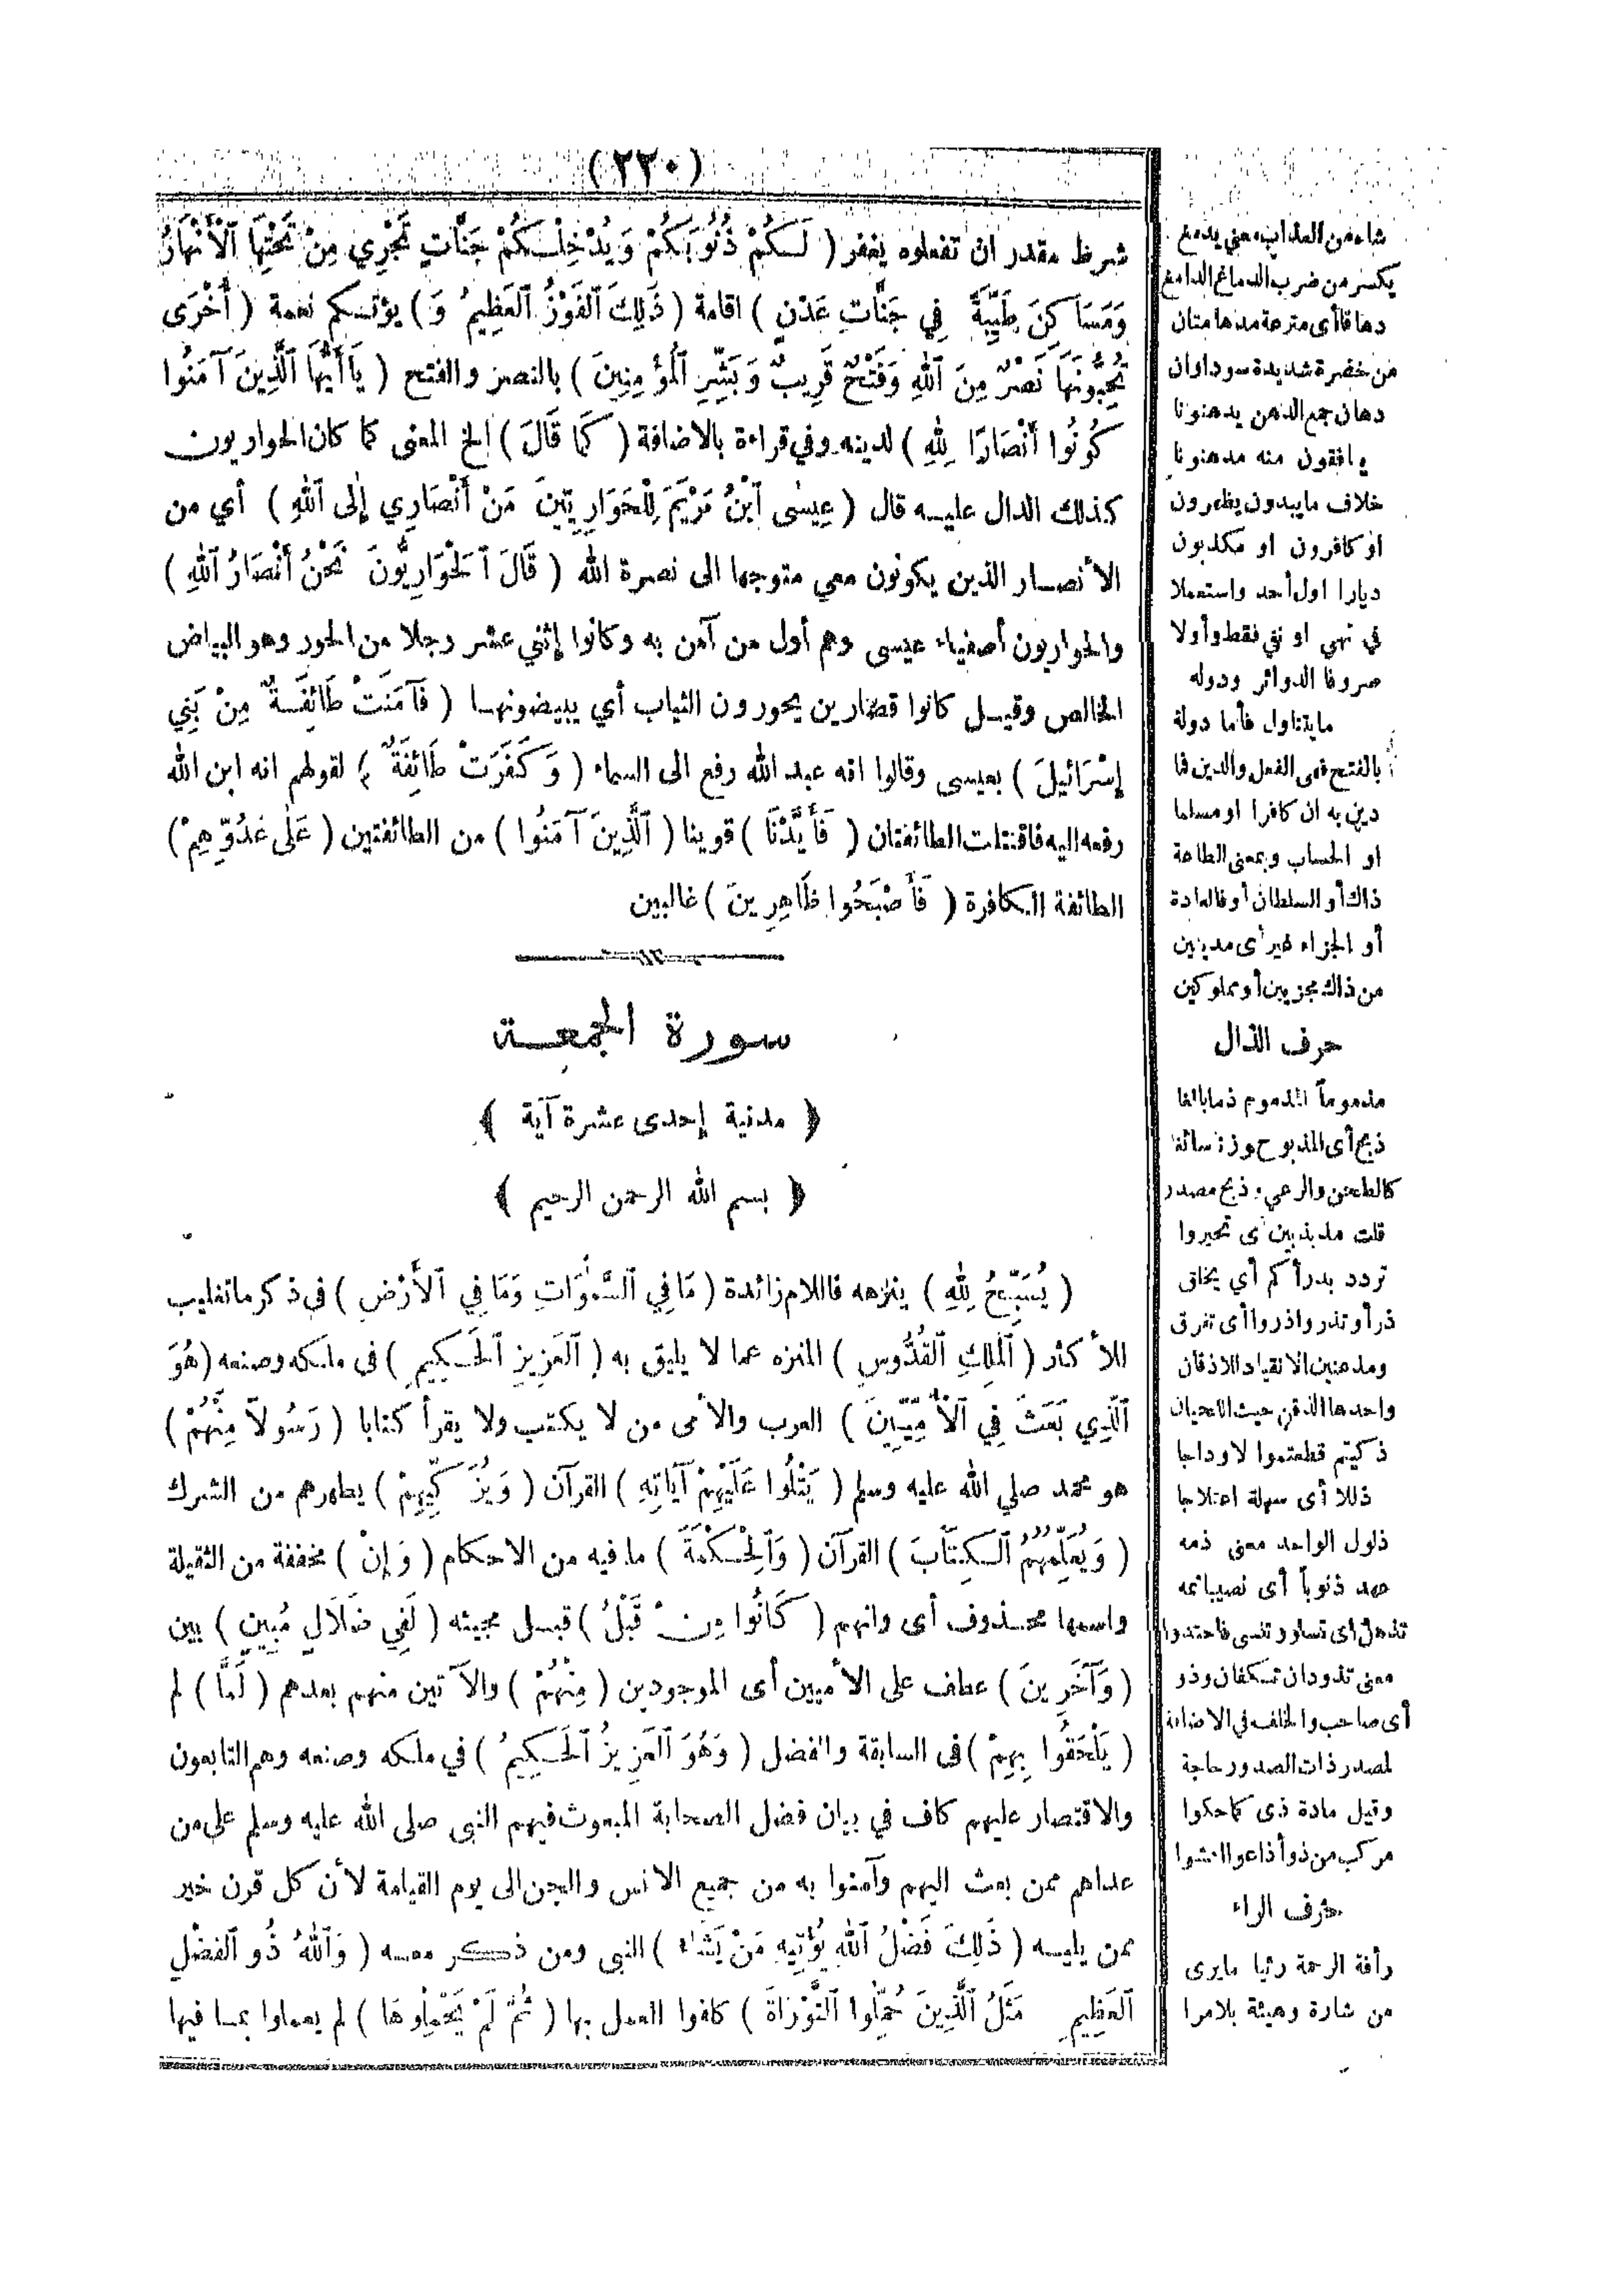 (٢٢٠)
شرط مقدر ان تفعلوه يغفر ( لَكُمْ ذُنُوبَكُمْ وَيُدْخِلْكُمْ جَنَّاتٍ تَجْرِي مِنْ تَحْتِهَا ٱلْأَنْهَارُ
وَمَسَاكِنَ طَيِّبَةً فِي جَنَّاتِ عَدْنٍ ) اقامة ( ذَلِكَ ٱلفَوْزُ ٱلعَظِيمُ وَ ) يؤتكم نعمة ( أُخْرَى
تُحِبُّونَهَا نَصْرٌ مِنَ ٱللهِ وَفَتْحٌ قَرِيبٌ وَبَشِّرِ ٱلمُؤْمِنِينَ ) بالنصر والفتح ( يَا أَيُّهَا ٱلَّذِينَ آمَنُوا
كُونُوا أَنْصَارًا لِلهِ ) لدينه وفي قراءة بالاضافة ( كَمَا قَالَ ) الخ المعنى كما كان الحواريون
كذلك الدال عليه قال ( عِيسٰى ٱبْنُ مَرْيَمَ لِلْحَوَارِيِّينَ مَنْ أَنْصَارِي إِلٰى ٱللهِ ) أي من
الأنصار الذين يكونون معي متوجها الى نصرة الله ( قَالَ ٱلْحَوَارِيُّونَ نَحْنُ أَنْصَارُ ٱللهِ )
والحواريون أصفياء عيسى وهم أول من آمن به وكانوا إثني عشر رجلا من الحور وهو البياض
الخالص وقيل كانوا قصارين يحورون الثياب أي يبيضونها ( فَآمَنَتْ طَائِفَةٌ مِنْ بَنِي
إِسْرَائِيلَ ) بعيسى وقالوا انه عبد الله رفع الى السماء ( وَكَفَرَتْ طَائِفَةٌ ) لقولهم انه ابن الله
رفعه اليه فاقتتلت الطائفتان ( فَأَيَّدْنَا ) قوينا ( ٱلَّذِينَ آمَنُوا ) من الطائفتين ( عَلٰى عَدُوِّهِمْ )
الطائفة الكافرة ( فَأَصْبَحُوا ظَاهِرِينَ ) غالبين
سورة الجمعة
﴿ مدنية إحدى عشرة آية ﴾
﴿ بسم الله الرحمن الرحيم ﴾
( يُسَبِّحُ لِلهِ ) ينزهه فاللام زائدة ( مَا فِي ٱلسَّمٰوَاتِ وَمَا فِي ٱلأَرْضِ ) في ذكر ما تغليب
للأكثر ( ٱلمَلِكِ ٱلقُدُّوسِ ) المنزه عما لا يليق به ( ٱلعَزِيزِ ٱلحَكِيمِ ) في ملكه وصنعه ( هُوَ
ٱلَّذِي بَعَثَ فِي ٱلأُمِّيِّينَ ) العرب والأمى من لا يكتب ولا يقرأ كتابا ( رَسُولاً مِنْهُمْ )
هو محمد صلي الله عليه وسلم ( يَتْلُوا عَلَيْهِمْ آيَاتِهِ ) القرآن ( وَيُزَكِّيهِمْ ) يطهرهم من الشرك
( وَيُعَلِّمُهُمُ ٱلكِتَابَ ) القرآن ( وَٱلْحِكْمَةَ ) ما فيه من الاحكام ( وَإِنْ ) مخففة من الثقيلة
واسمها محذوف أى وانهم ( كَانُوا مِنْ قَبْلُ ) قبل مجيئه ( لَفِي ضَلَالٍ مُبِينٍ ) بين
( وَآخَرِينَ ) عطف على الأميين أى الموجودين ( مِنْهُمْ ) والآتين منهم بعدهم ( لَمَّا ) لم
( يَلْحَقُوا بِهِمْ ) فى السابقة والفضل ( وَهُوَ ٱلعَزِيزُ ٱلحَكِيمُ ) في ملكه وصنعه وهم التابعون
والاقتصار عليهم كاف في بيان فضل الصحابة المبعوث فيهم النبى صلى الله عليه وسلم على من
عداهم ممن بعث اليهم وآمنوا به من جميع الانس والجن الى يوم القيامة لأن كل قرن خير
ممن يليه ( ذَلِكَ فَضْلُ ٱللهِ يُؤْتِيهِ مَنْ يَشَاء ) النبى ومن ذكر معه ( وَٱللهُ ذُو ٱلفَضْلِ
ٱلعَظِيمِ مَثَلُ ٱلَّذِينَ حُمِّلُوا ٱلتَّوْرَاةَ ) كلفوا العمل بها ( ثُمَّ لَمْ يَحْمِلُوهَا ) لم يعملوا بما فيها
شاء من العذاب معني يدمغ
يكسر من ضرب الدماغ الدامغ
دهاقا أى مترعة مدهامتان
من خضرة شديدة سوداوان
دهان جمع الدهن يدهنونا
ينافقون منه مدهنونا
خلاف ما يبدون يظهرون
او كافرون او مكذبون
ديارا اول أحد واستعملا
في نهي او نفي فقط وأولا
صروفا الدوائر ودوله
ما يتناول فأما دولة
بالفتح فهى الفعل والدين فما
دين به ان كافرا او مسلما
او الحساب وبمعنى الطاعة
ذاك أو السلطان أو فالعادة
أو الجزاء غير أى مدينين
من ذاك مجزيين أو مملوكين
حرف الذال
مذموماً المذموم ذما بالغا
ذبح أى المذبوح وزنا سائغا
كالطحن والرعي وذبح مصدر
قلت مذبذبين أى تحيروا
تردد يذرأكم أي يخلق
ذرأ وتذرو اذروا أى تفرق
ومذعنين الانقياد للاذقان
واحدها الذقن حيث اللحيان
ذكيتم قطعتموا لاوداجا
ذللا أى سهلة اعتلاجا
ذلول الواحد معنى ذمه
عهد ذنوباً أى نصيبا عمه
تذهل أى تسلو وتنسى فاحتدوا
معنى تذودان تكفان وذو
أى صاحب والخلف في الاضافة
لمصدر ذات الصدور حاجة
وقيل مادة ذى كما حكوا
مركب من ذو أذاعوا افشوا
حرف الراء
رأفة الرحمة رئيا ما يرى
من شارة وهيئة بلا مرا